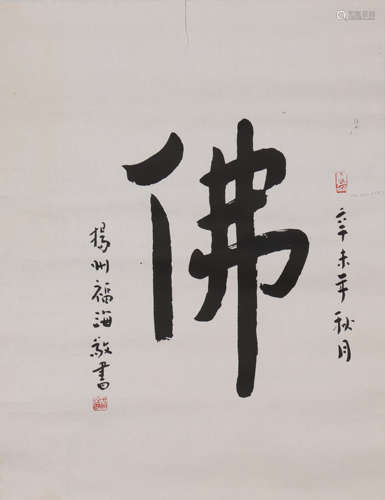 辛未年秋月
佛
揚州福海敬書